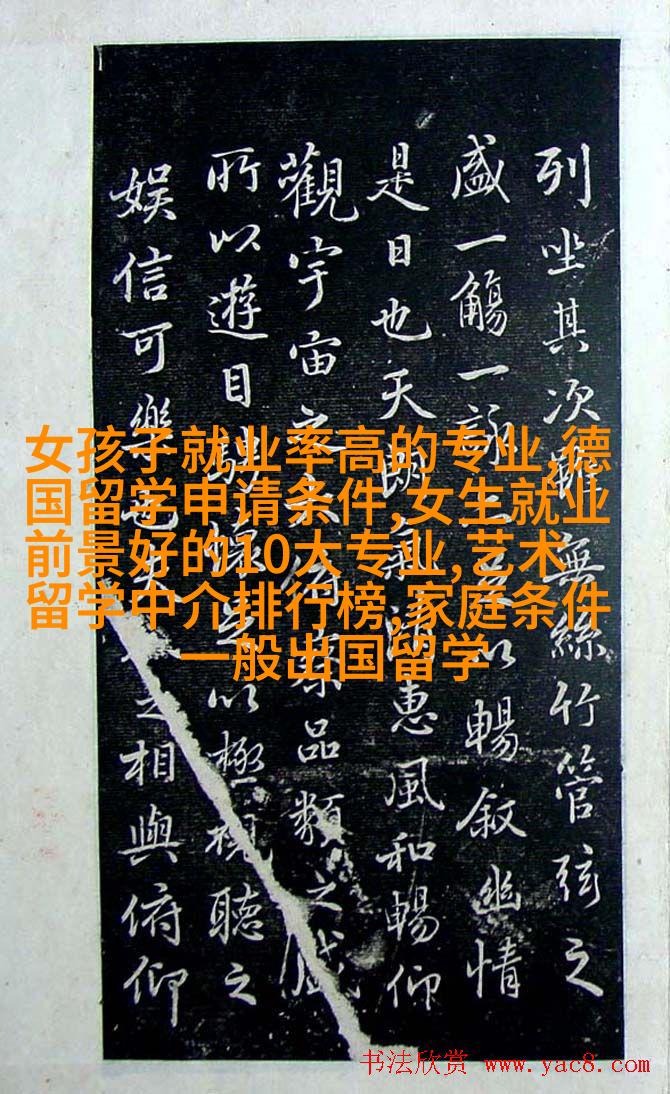 列坐其次雖無絲竹管弦之
盛一觴一詠以暢叙幽情
是日也天朗氣清惠風和暢仰
觀宇宙之察品類之盛
所以遊目騁懷足以極視聽之
娛信可樂也夫之相與俯仰
女孩子就业率高的专业,德
国留学申请条件,女生就业
前景好的10大专业,艺术
留学中介排行榜,家庭条件
一般出国留学
书法欣赏 www.yac8.com